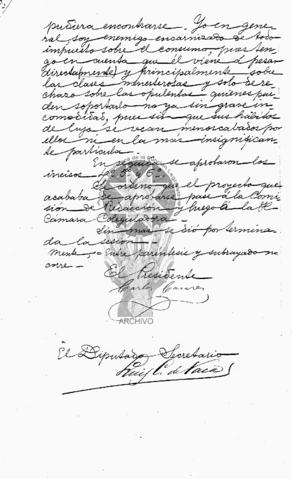 pudiera encontrarse. Yo en gene-
ral soy enemigo encarnizado de todo
impuesto sobre el consumo, pues ten-
go en cuenta que él viene á pesar
directa(mente) y principalmente sobre
las clases menesterosas y solo de re-
chazo sobre los opulentos quienes pue-
den soportarlo no ya sin grave in-
comodidad, pues sin que sus hábitos
de lujo se vean menoscabados por
ellos ni en la más insignifican-
te partícula.
En seguida se aprobaron los
incisos
Se ordenó que el proyecto que
acababa de aprobarse pase á la Comi-
sión de Redacción y luego á la H.
Cámara Colegisladora.
Sin más se dió por termina-
da la sesión.
mente, Entre paréntesis y subrayado no
corre.
El Presidente
Carlos
ARCHIVO
El Diputado Secretario
Luis C. de Vaca